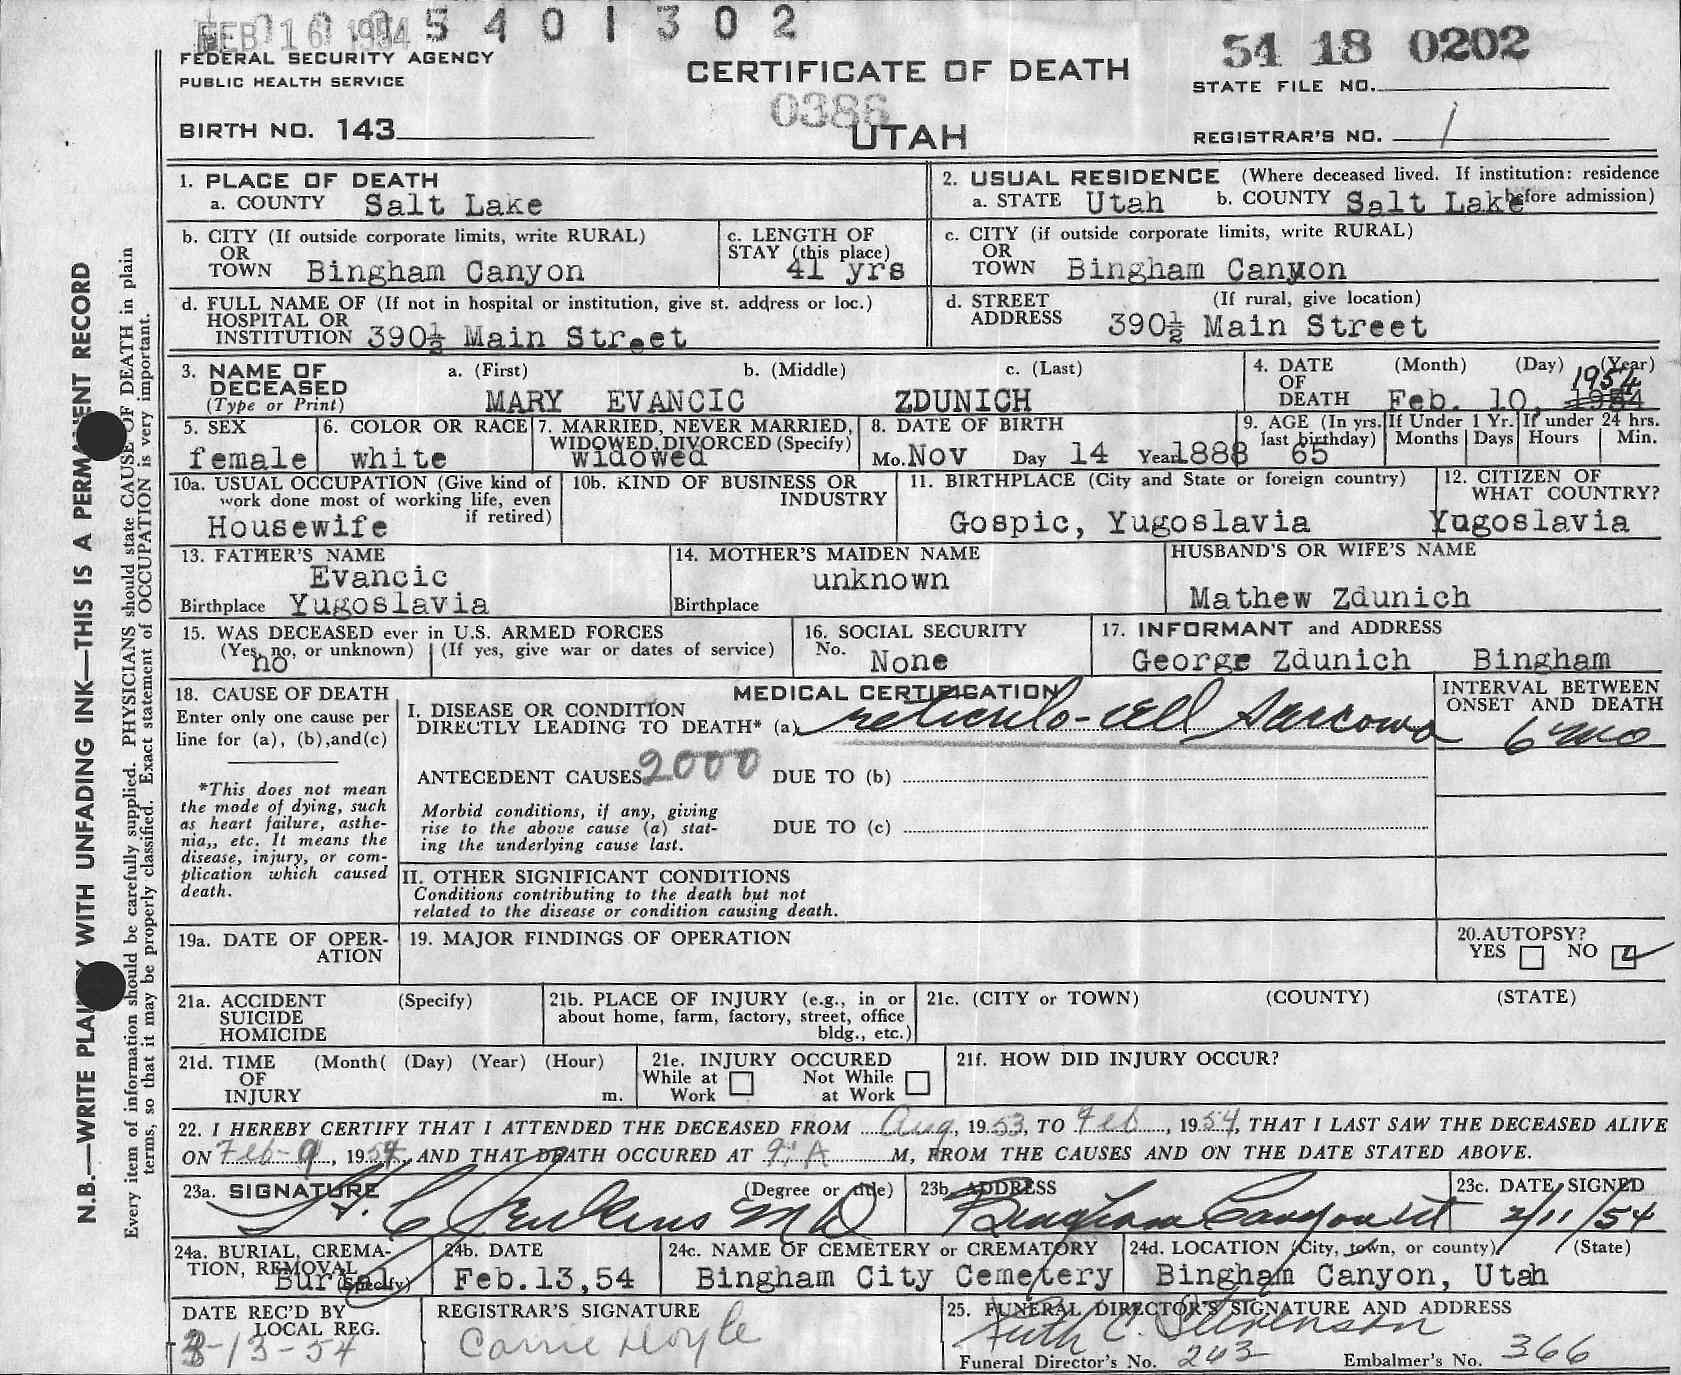 FEB 16 1954
5 4 0 1 3 0 2
54 18 0202
FEDERAL SECURITY AGENCY
PUBLIC HEALTH SERVICE
CERTIFICATE OF DEATH
STATE FILE NO.
0386
BIRTH NO. 143
UTAH
REGISTRAR'S NO. 1
1. PLACE OF DEATH
a. COUNTY Salt Lake
2. USUAL RESIDENCE (Where deceased lived. If institution: residence
a. STATE Utah b. COUNTY Salt Lake before admission)
b. CITY (If outside corporate limits, write RURAL)
OR
TOWN Bingham Canyon
c. LENGTH OF
STAY (this place)
41 yrs
c. CITY (if outside corporate limits, write RURAL)
OR
TOWN Bingham Canyon
d. FULL NAME OF (If not in hospital or institution, give st. address or loc.)
HOSPITAL OR
INSTITUTION 390½ Main Street
d. STREET (If rural, give location)
ADDRESS 390½ Main Street
3. NAME OF a. (First) b. (Middle) c. (Last)
DECEASED
(Type or Print) MARY EVANCIC ZDUNICH
4. DATE (Month) (Day) (Year)
OF 1954
DEATH Feb. 10,
5. SEX
female
6. COLOR OR RACE
white
7. MARRIED, NEVER MARRIED,
WIDOWED, DIVORCED (Specify)
widowed
8. DATE OF BIRTH
Mo. Nov Day 14 Year 1888
9. AGE (In yrs.
last birthday)
65
If Under 1 Yr.
Months Days
If under 24 hrs.
Hours Min.
10a. USUAL OCCUPATION (Give kind of
work done most of working life, even
if retired)
Housewife
10b. KIND OF BUSINESS OR
INDUSTRY
11. BIRTHPLACE (City and State or foreign country)
Gospic, Yugoslavia
12. CITIZEN OF
WHAT COUNTRY?
Yugoslavia
13. FATHER'S NAME
Evancic
Birthplace Yugoslavia
14. MOTHER'S MAIDEN NAME
unknown
Birthplace
HUSBAND'S OR WIFE'S NAME
Mathew Zdunich
15. WAS DECEASED ever in U.S. ARMED FORCES
(Yes, no, or unknown) (If yes, give war or dates of service)
no
16. SOCIAL SECURITY
No. None
17. INFORMANT and ADDRESS
George Zdunich Bingham
18. CAUSE OF DEATH
Enter only one cause per
line for (a), (b),and(c)
*This does not mean
the mode of dying, such
as heart failure, asthe-
nia,, etc. It means the
disease, injury, or com-
plication which caused
death.
MEDICAL CERTIFICATION
I. DISEASE OR CONDITION
DIRECTLY LEADING TO DEATH* (a) reticulo-cell Sarcoma
INTERVAL BETWEEN
ONSET AND DEATH
6 mo
ANTECEDENT CAUSES 2000 DUE TO (b)
Morbid conditions, if any, giving
rise to the above cause (a) stat-
ing the underlying cause last.
DUE TO (c)
II. OTHER SIGNIFICANT CONDITIONS
Conditions contributing to the death but not
related to the disease or condition causing death.
19a. DATE OF OPER-
ATION
19. MAJOR FINDINGS OF OPERATION
20.AUTOPSY?
YES NO
21a. ACCIDENT (Specify)
SUICIDE
HOMICIDE
21b. PLACE OF INJURY (e.g., in or
about home, farm, factory, street, office
bldg., etc.)
21c. (CITY or TOWN) (COUNTY) (STATE)
21d. TIME (Month( (Day) (Year) (Hour)
OF
INJURY m.
21e. INJURY OCCURED
While at Not While
Work at Work
21f. HOW DID INJURY OCCUR?
22. I HEREBY CERTIFY THAT I ATTENDED THE DECEASED FROM Aug, 19 53, TO Feb, 19 54, THAT I LAST SAW THE DECEASED ALIVE
ON Feb-9, 19 54, AND THAT DEATH OCCURED AT 9: A M, FROM THE CAUSES AND ON THE DATE STATED ABOVE.
23a. SIGNATURE (Degree or title)
H. C. Jenkins MD
23b. ADDRESS
Bingham Canyon Ut
23c. DATE SIGNED
2/11/54
24a. BURIAL, CREMA-
TION, REMOVAL
(Specify) Burial
24b. DATE
Feb.13,54
24c. NAME OF CEMETERY or CREMATORY
Bingham City Cemetery
24d. LOCATION (City, town, or county) (State)
Bingham Canyon, Utah
DATE REC'D BY
LOCAL REG.
2-13-54
REGISTRAR'S SIGNATURE
Carrie Hoyle
25. FUNERAL DIRECTOR'S SIGNATURE AND ADDRESS
Ruth C. Stevenson
Funeral Director's No. 243 Embalmer's No. 366
N.B.—WRITE PLAINLY WITH UNFADING INK—THIS IS A PERMANENT RECORD
Every item of information should be carefully supplied. PHYSICIANS should state CAUSE OF DEATH in plain
terms, so that it may be properly classified. Exact statement of OCCUPATION is very important.